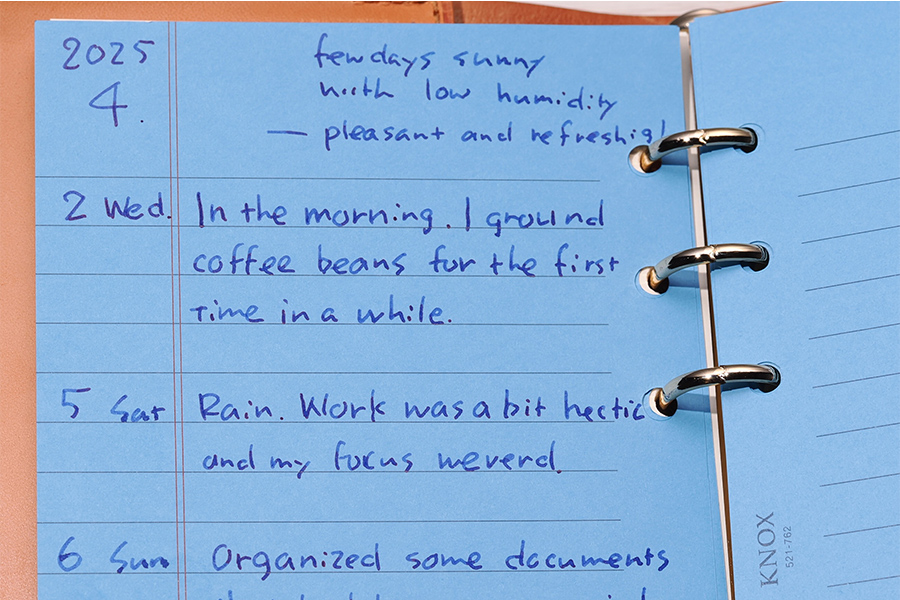 2025
4.
few days sunny
with low humidity
— pleasant and refreshig!
2 Wed. In the morning. I ground
coffee beans for the first
time in a while.
5 Sat Rain. Work was a bit hectic
and my focus weverd.
6 Sun Organized some documents
KNOX
521-762